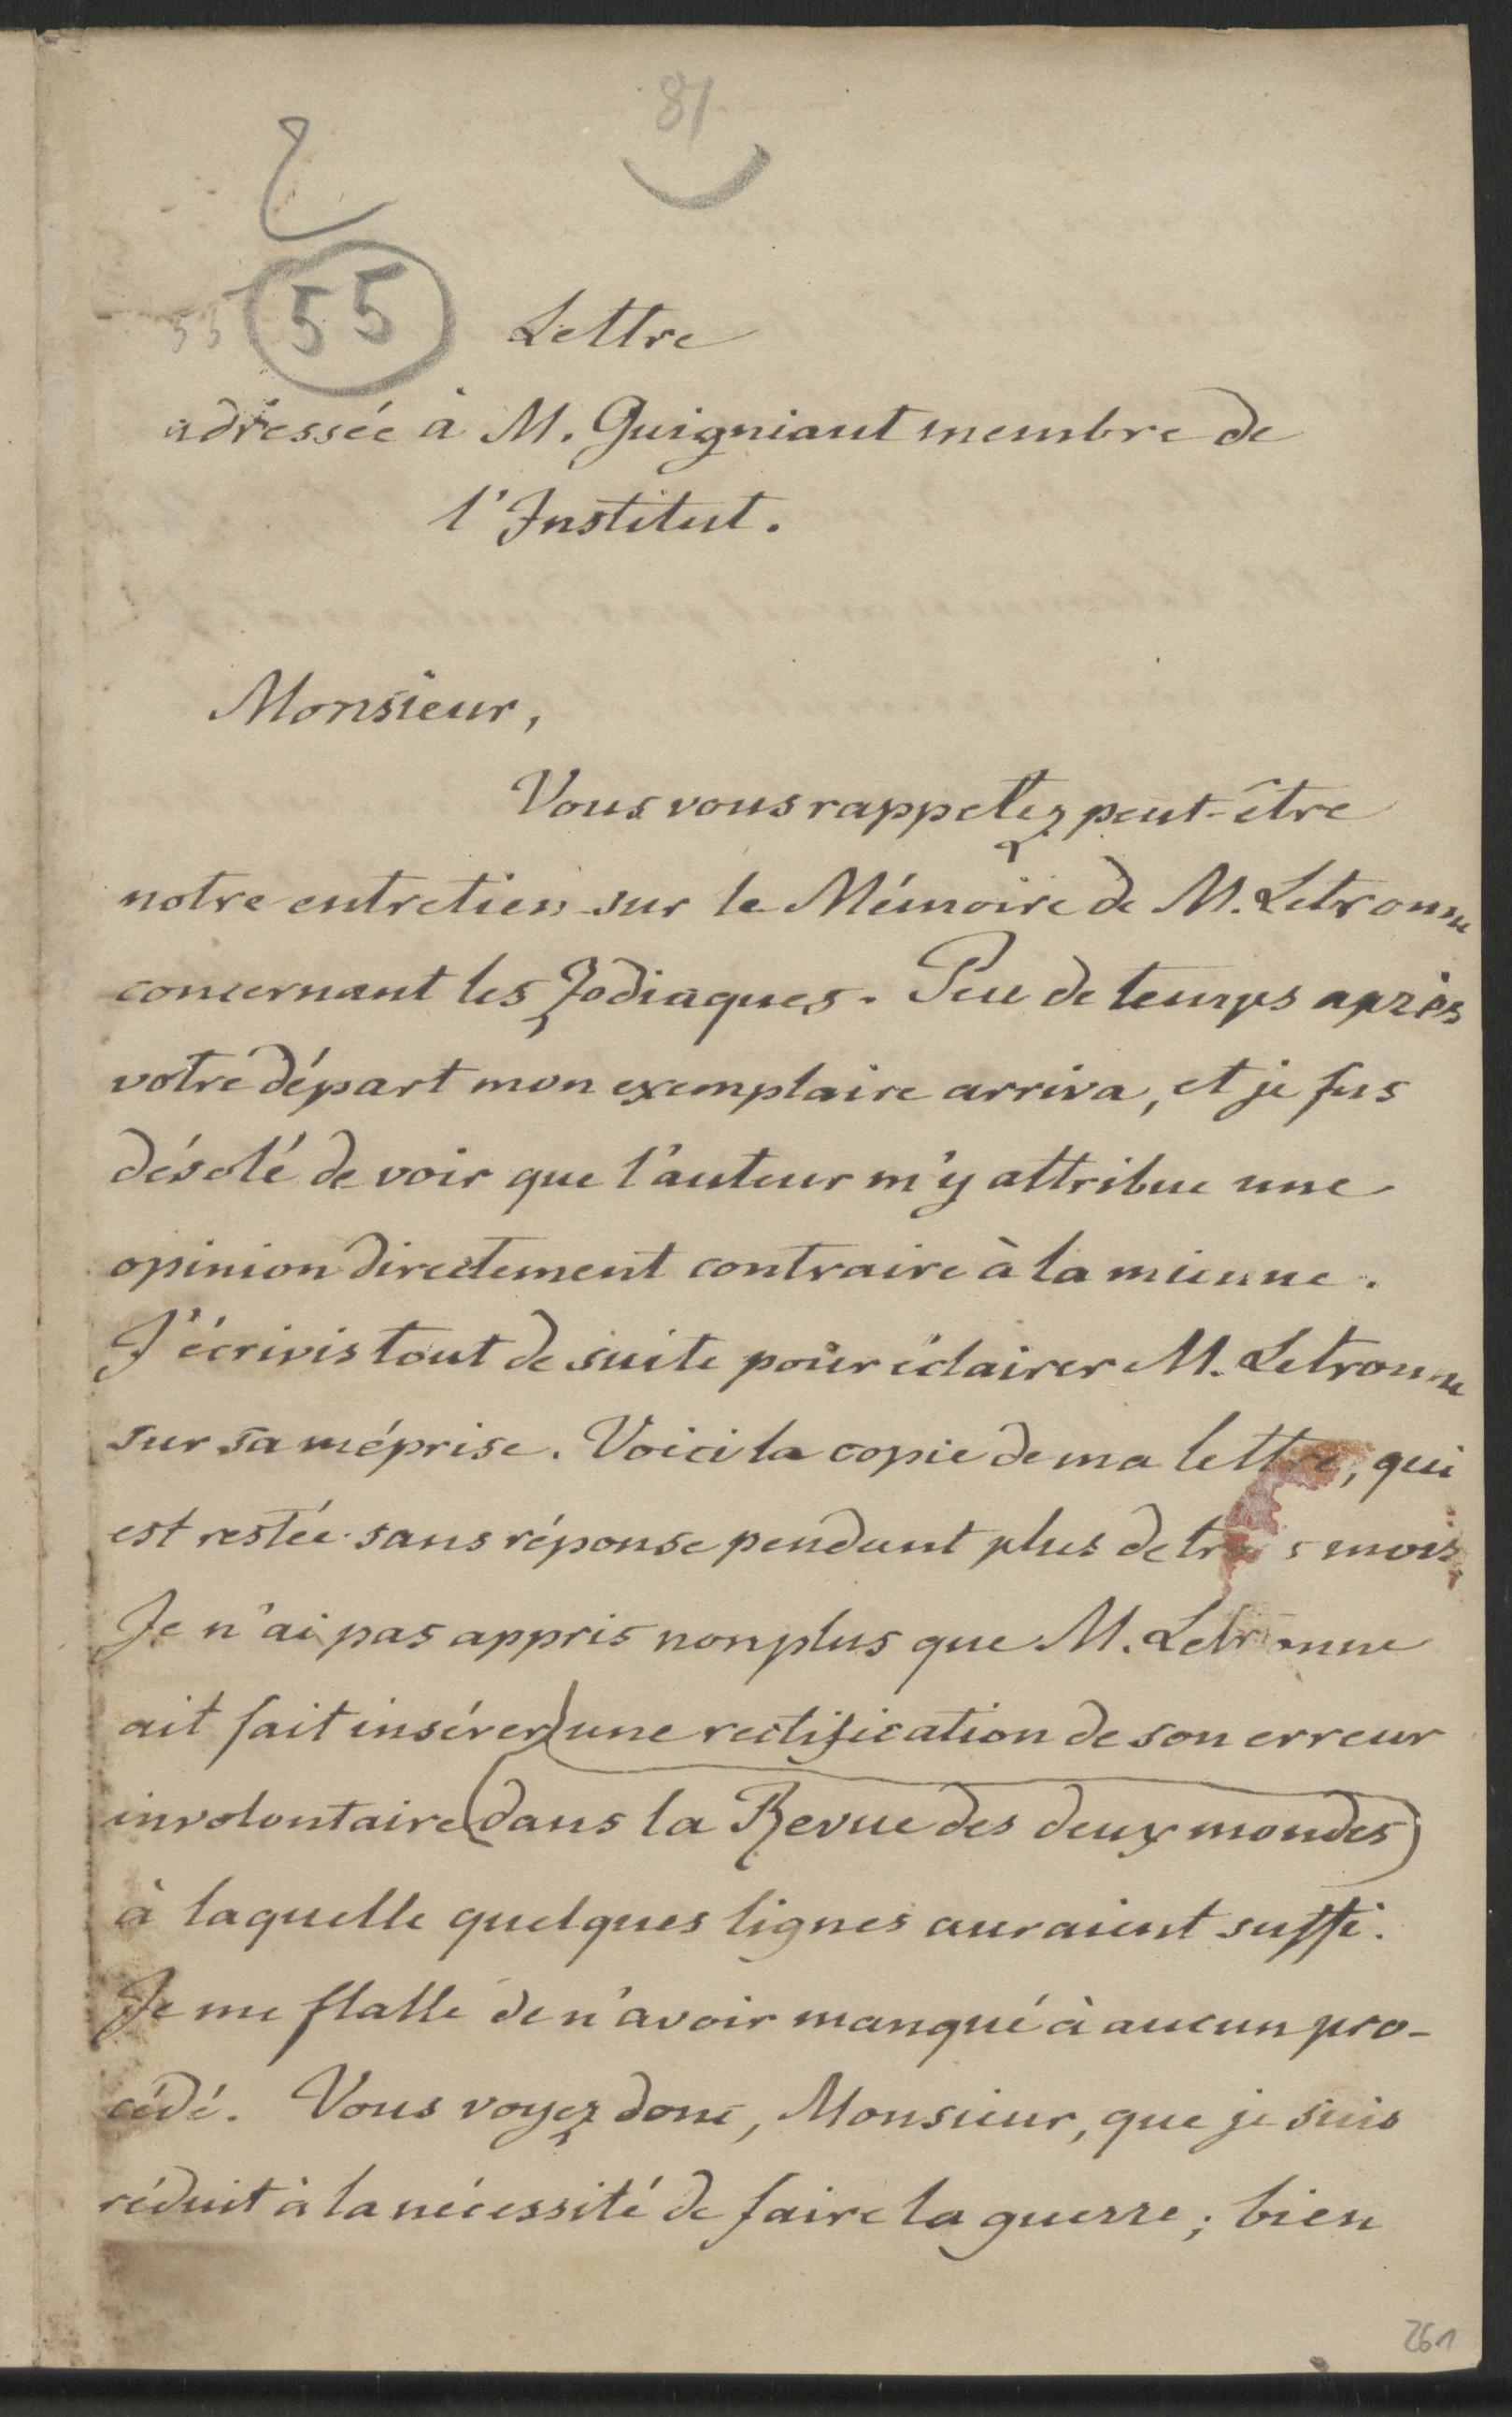 81
55 55
Lettre
adressée à M. Guigniaut membre de
l'Institut.
Monsieur,
Vous vous rappelez peut-être
notre entretien sur le Mémoire de M. Letronne
concernant les Zodiaques. Peu de temps après
votre départ mon exemplaire arriva, et je fus
désolé de voir que l'auteur m'y attribue une
opinion directement contraire à la mienne.
J'écrivis tout de suite pour éclairer M. Letronne
sur sa méprise. Voici la copie de ma lettre, qui
est restée sans réponse pendant plus de trois mois.
Je n'ai pas appris non plus que M. Letronne
ait fait insérer une rectification de son erreur
involontaire dans la Revue des deux mondes
à laquelle quelques lignes auraient suffi.
Je me flatte de n'avoir manqué à aucun pro-
cédé. Vous voyez donc, Monsieur, que je suis
réduit à la nécessité de faire la guerre; bien
261